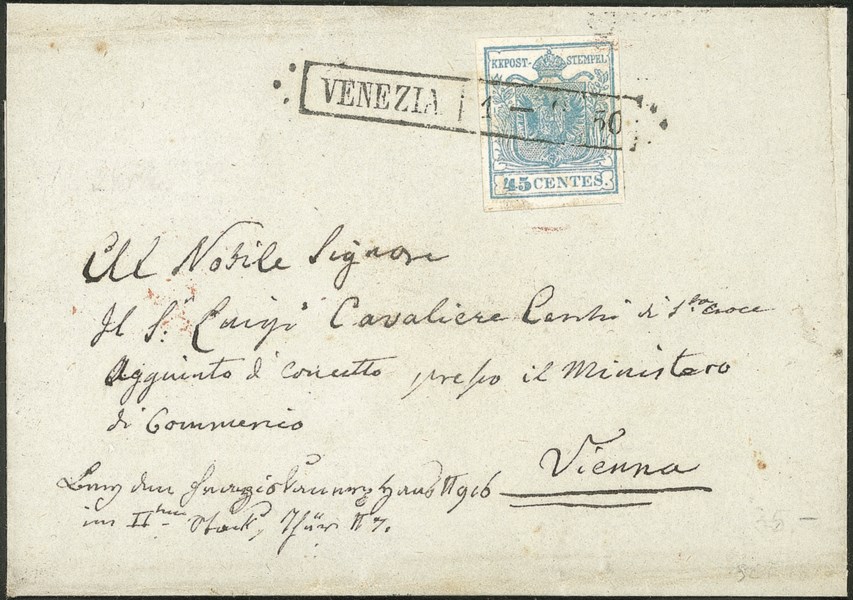 KKPOST-STEMPEL
VENEZIA
45 CENTES.
Al Nobile Signore
Il S.r Luigi Cavaliere di S.ta Croce
Aggiunto di concetto presso il Ministero
di Commercio
Vienna
916
im II Stock, Thür N 7.